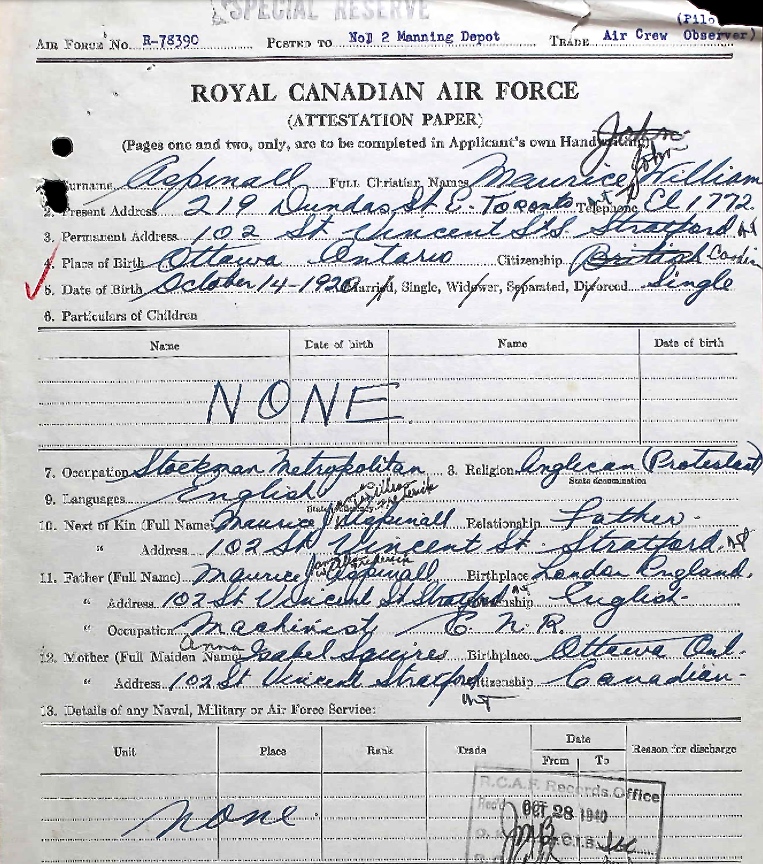 SPECIAL RESERVE
(Pilo
AIR FORCE No. R-78390 POSTED TO No 2 Manning Depot TRADE Air Crew Observer)
ROYAL CANADIAN AIR FORCE
(ATTESTATION PAPER)
(Pages one and two, only, are to be completed in Applicant's own Handwriting)
John
John
Surname Aspinall FULL Christian Names Maurice William
2. Present Address 219 Dundas St E. Toronto Ont Telephone El 1772
3. Permanent Address 102 St Vincent St S Stratford
4. Place of Birth Ottawa Ontario Citizenship British
5. Date of Birth October 14-1920 Married, Single, Widower, Separated, Divorced Single
6. Particulars of Children
Name Date of birth Name Date of birth
NONE
7. Occupation Stockman Metropolitan 8. Religion Anglican (Protestant)
State denomination
9. Languages English
10. Next of Kin (Full Name) Maurice Aspinall Relationship Father
" Address 102 St Vincent St. Stratford.
11. Father (Full Name) Maurice Aspinall Birthplace London England.
" Address 102 St Vincent St Stratford Citizenship English
" Occupation Machinist C. N. R.
Anna
12. Mother (Full Maiden Name) Isabel Squires Birthplace Ottawa Ont.
" Address 102 St Vincent Stratford Citizenship Canadian
Ont
13. Details of any Naval, Military or Air Force Service:
Unit Place Rank Trade Date Reason for discharge
From To
none
R.C.A.F. Records Office
Rec'd OCT 28 1940